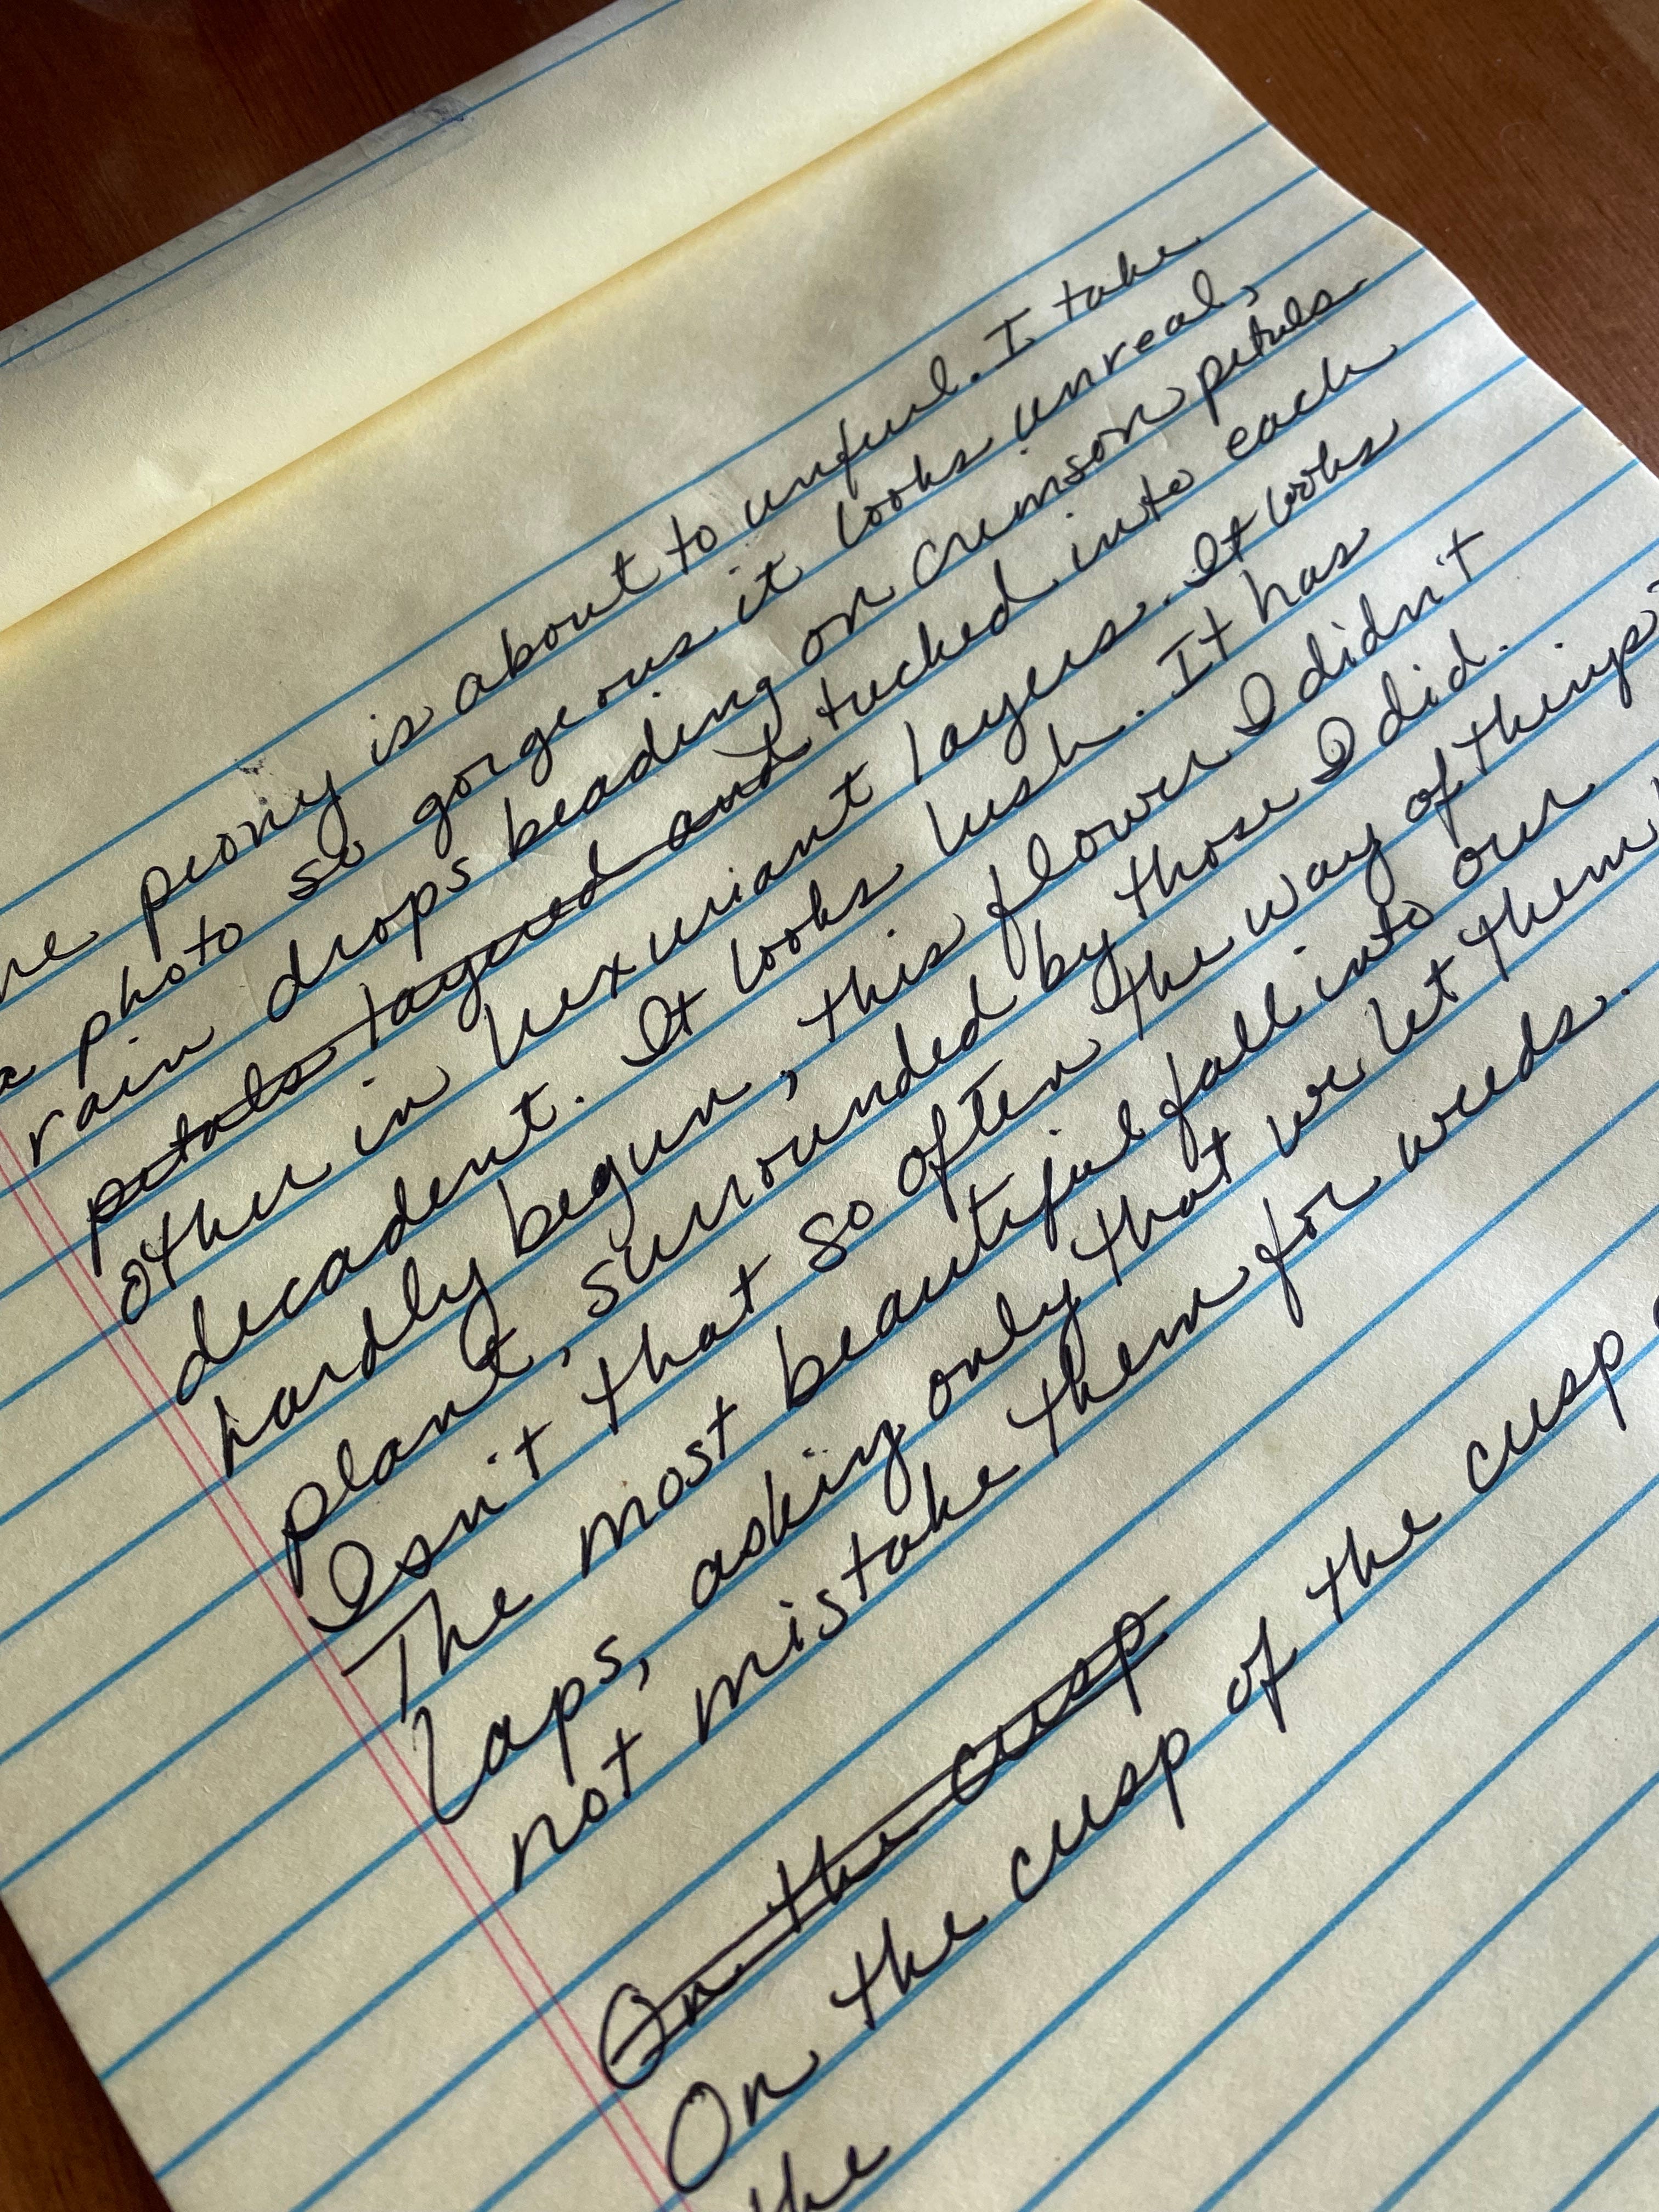 peony is about to unfurl. I take
a photo so gorgeous it looks unreal,
rain drops beading on crimson petals
petals layered and tucked into each
other in luxuriant layers. It looks
decadent. It looks lush. It has
hardly begun, this flower I didn't
plant, surrounded by those I did.
Isn't that so often the way of things?
The most beautiful fall into our
laps, asking only that we let them,
not mistake them for weeds.
On the cusp
On the cusp of the cusp
the